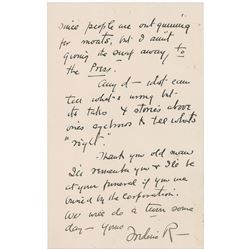 since people are out gunning
for moats, but I aint
giving the swag away to
the Press.
Any d— idiot can
tell what's wrong but
its takes & stories above
ones eyebrows to tell whats
"right".
Thank you old man
I'll remember you & I'll be
at your funeral if you are
buried by the Corporation.
We will do a turn some
day — yours
R—